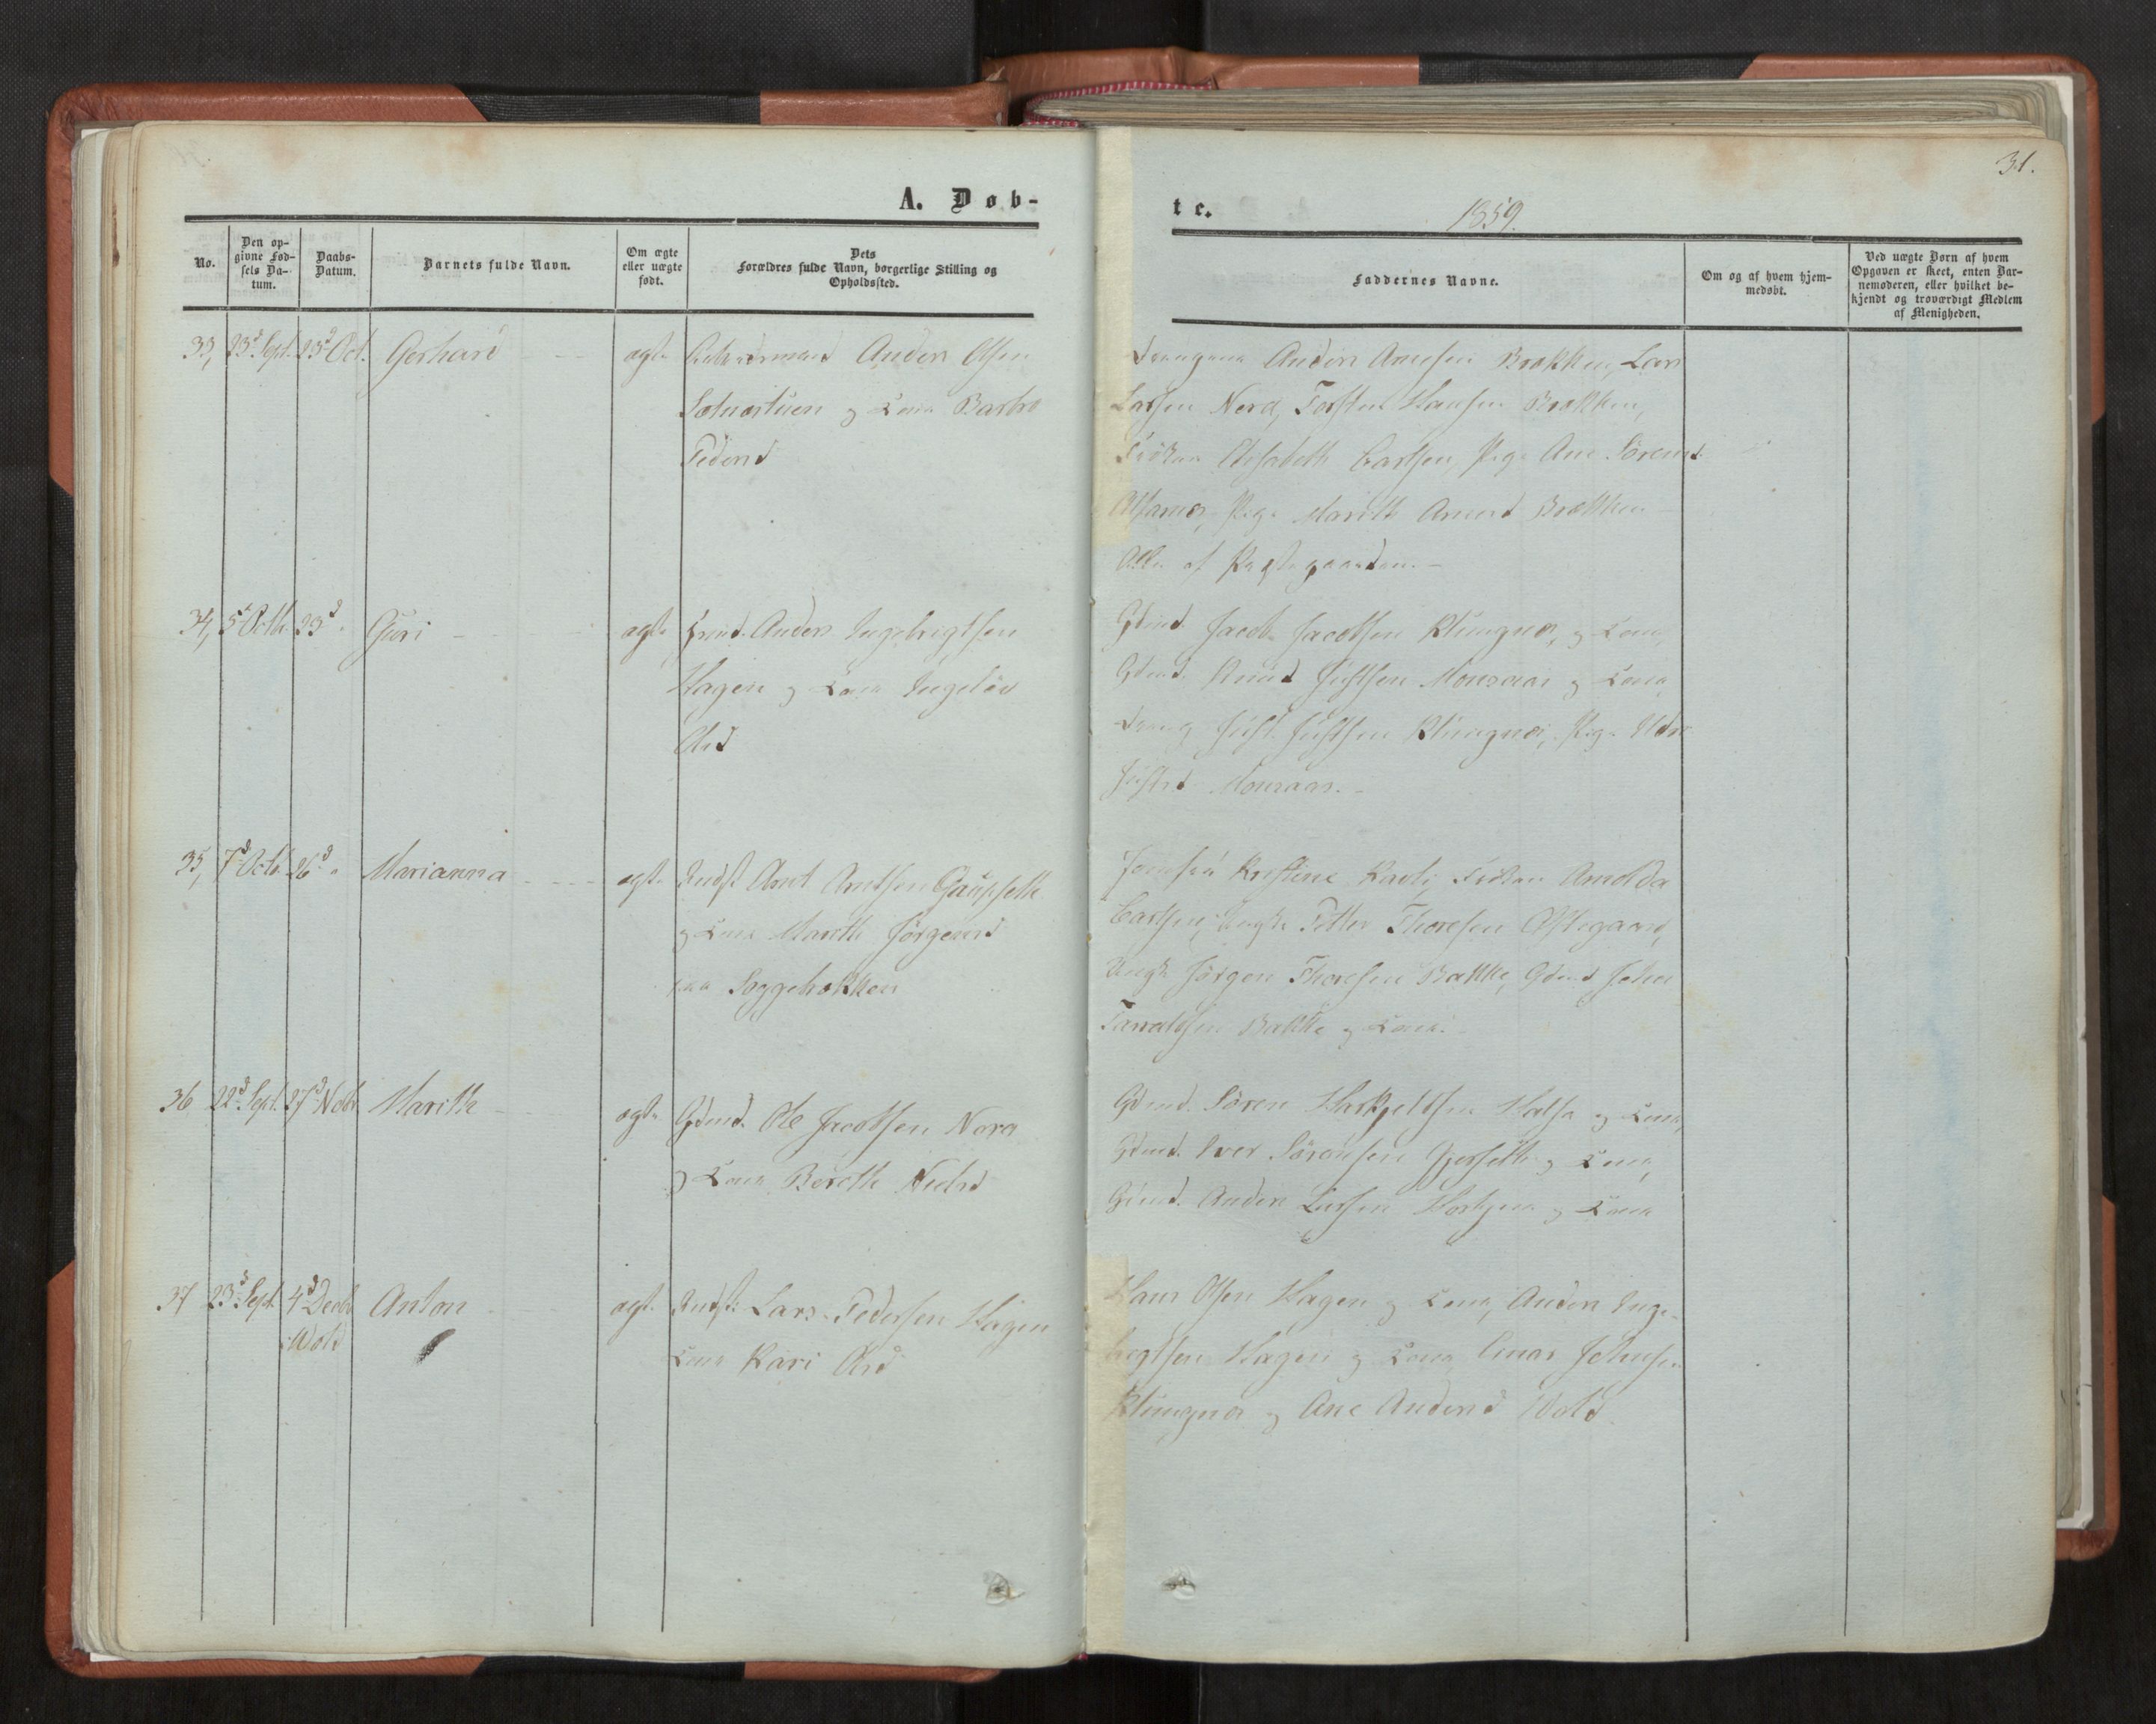 31.
A. Døb-
te.
1859.
No.
Den op-
givne Fød-
sels Da-
tum.
Daabs-
Datum.
Barnets fulde Navn.
Om ægte
eller uægte
født.
Dets
Forældres fulde Navn, borgerlige Stilling og
Opholdssted.
Faddernes Navne.
Om og af hvem hjem-
medøbt.
Ved uægte Børn af hvem
Opgaven er skeet, enten Bar-
nemoderen, eller hvilket be-
kjendt og troværdigt Medlem
af Menigheden.
33, 23d Sept. 23d Oct. Gerhard ægte Anders Olsen
Sætnæstuen og Kone Barbro
Pedersd
Anders Arnesen Brækken, Lars
Larsen Nera, Torsten Hansen Brækken,
Frøken Elisabeth Carlsen, Pige Ane Sørensd.
Pige Marith Arnesd Brækken
Alle af Prestegaarden.
34, 5te Octb. 23d Guri ægte Anders Ingebrigtsen
Hagen og Kone Ingeløv
Olsd
Gdmd. Jacob Jacobsen Klungnæs, og Kone,
Gdmd. Amund Justsen Monsaas og Kone
Dreng Just Justsen Klungnæs, Pige
Justsd Monsaas.
35, 7d Octb. 26d Marianna ægte Indst Arnt Arntsen Gaupseth
og Kone Marith Jørgensd
paa Soggebakken
Jomfru Kristine Kavli, Frøken Arnolda
Carlsen, Ungk. Petter Thoresen Østigaard,
Ungk Jørgen Thoresen Bakke, Gdmd John
Bakke og Kone.
36 22d Sept. 27d Novb. Marith ægte Gdmd. Ole Jacobsen Nora
og Kone Bereth Nielsd
Gdmd. Søren Halsa og Kone,
Gdmd. Iver Sørensen Gjerseth og Kone,
Gdmd. Anders Larsen og Kone
37 23d Sept. 4d Decbr Anton ægte Indst: Lars Pedersen Hagen
Wold
Kone Kari Olsd
Hans Olsen Hagen og Kone, Anders Inge-
brigtsen Hagen og Kone Einar Johnsen
Klungnæs og Ane Andersd Wold